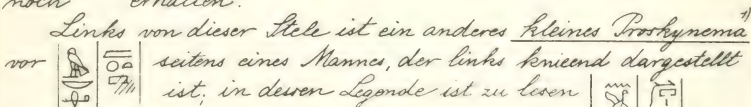 noch erhalten.
Links von dieser Stele ist ein anderes kleines Proskynema 1)
vor seitens eines Mannes, der links knieend dargestellt
ist, in dessen Legende ist zu lesen